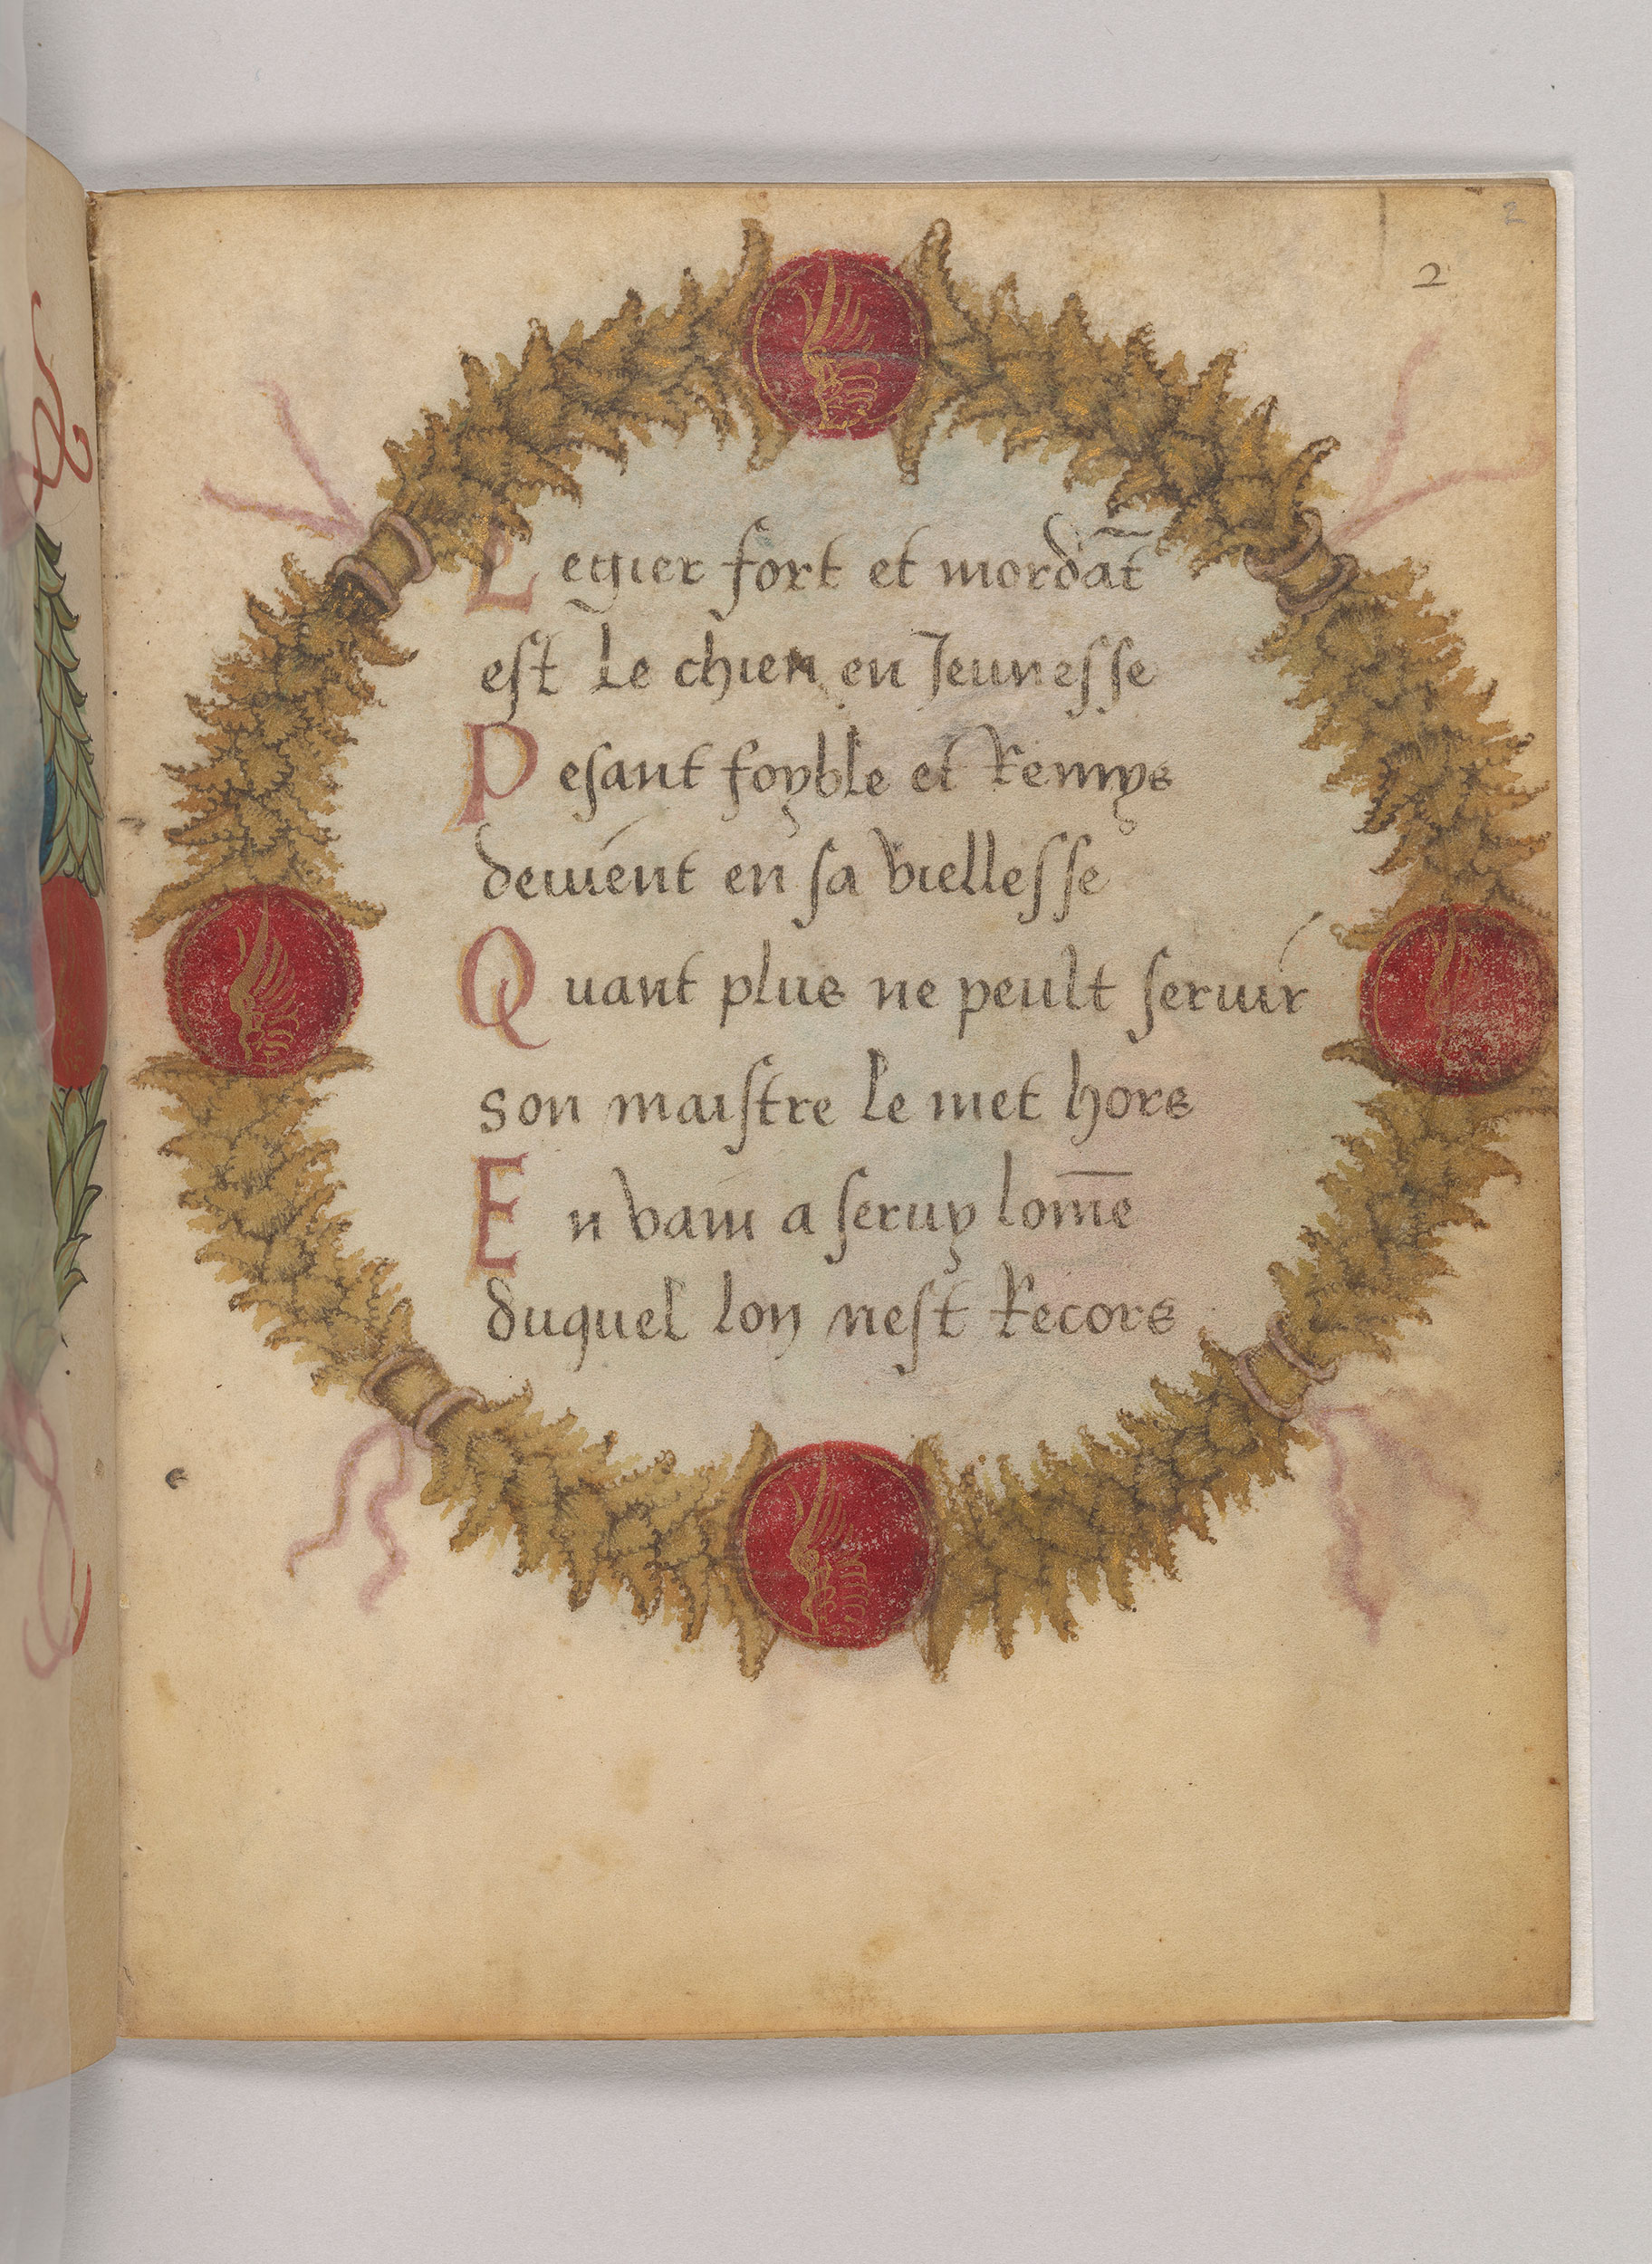 2
2
Legier fort et mordāt
est le chien en Jeunesse
Pesant foyble et Remys
deuient en sa viellesse
Quant plus ne peult seruir
son maistre le met hors
En vain a seruy lom̄e
duquel lon nest Recors